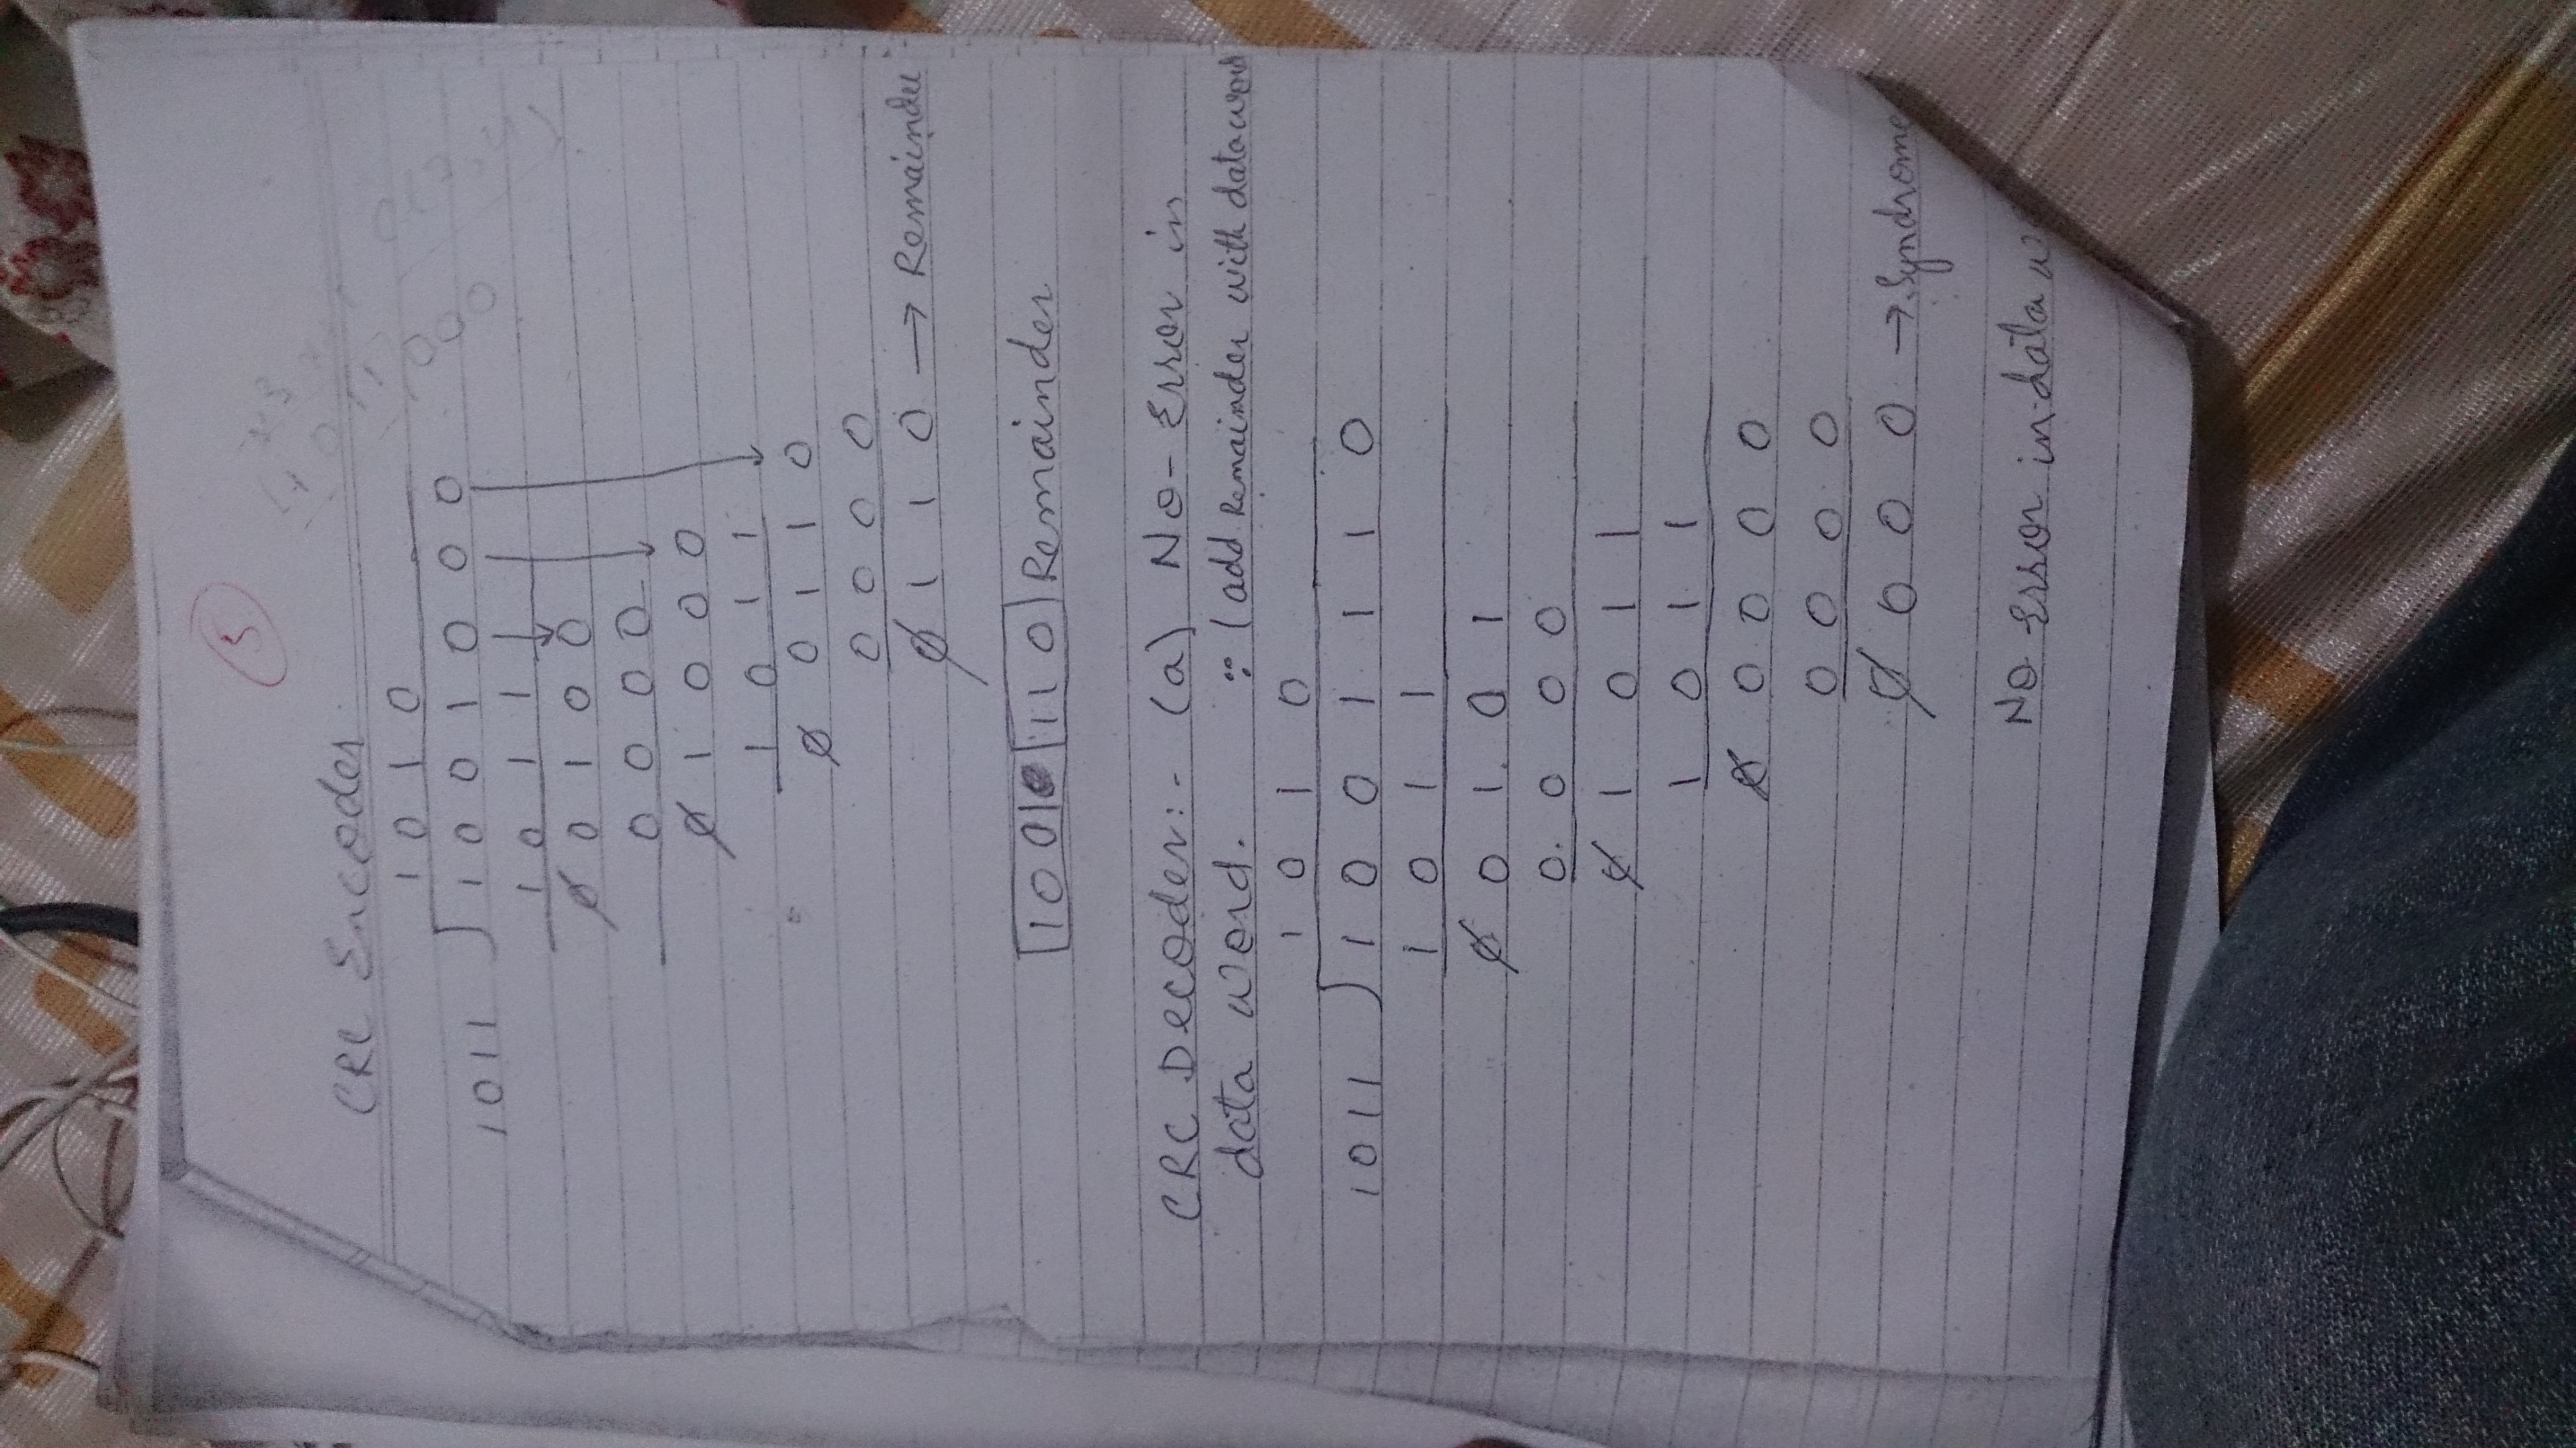 5
CRC Encoder
1 0 1 0
1011 ) 1 0 0 1 0 0 0
1 0 1 1
0 0 1 0 0
0 0 0 0
0 1 0 0 0
1 0 1 1
0 0 1 1 0
0 0 0 0
0 1 1 0 → Remainder
1001 110 Remainder
CRC Decoder:- (a) No-Error in
data word. :: (add Remainder with dataword
1 0 1 0
1011 ) 1 0 0 1 1 1 0
1 0 1 1
0 0 1 0 1
0 0 0 0
0 1 0 1 1
1 0 1 1
0 0 0 0 0
0 0 0 0
0 0 0 0 → Syndrome
No Error in data w